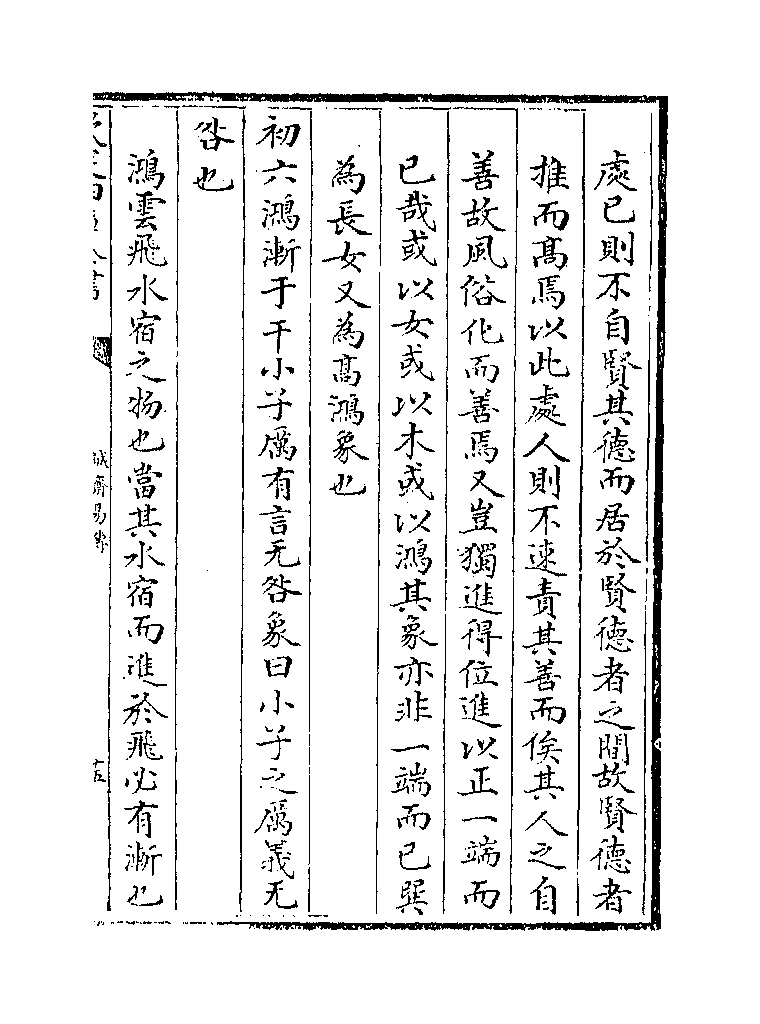 處已則不自賢其德而居於賢德者之間故賢德者
推而髙焉以此處人則不速責其善而俟其人之自
善故風俗化而善焉又豈獨進得位進以正一端而
已哉或以女或以木或以鴻其象亦非一端而已巽
為長女又為髙鴻象也
初六鴻漸于干小子厲有言无咎象曰小子之厲義无
咎也
鴻雲飛水宿之物也當其水宿而進於飛必有漸也
誠齋易傳
十五